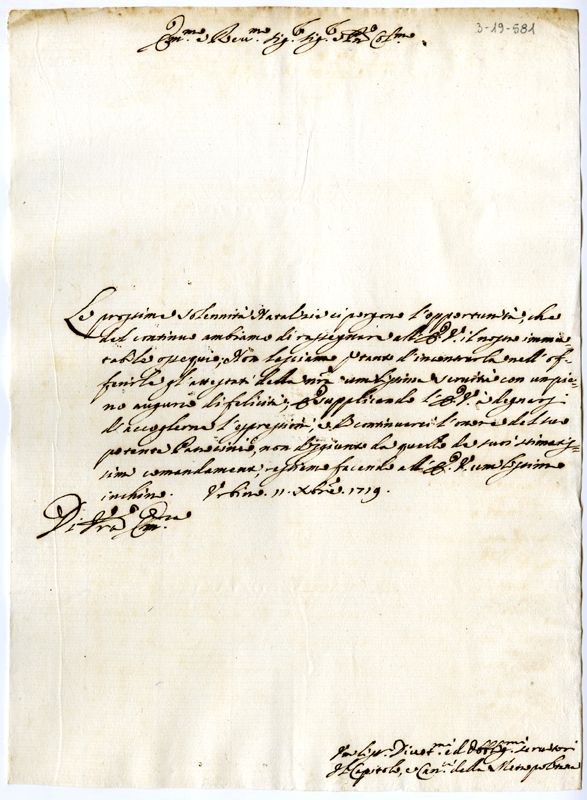 Em.mo e Rev.mo Sig.r Sig.r e Pnē Col.mo
3-19-581
Le prossime solennità Natalizie ci porgono l'opportunità, che
del continuo ambiamo di rassegnare all'E.V. il nostro immu=
tabile ossequio; Non lasciamo p tanto d'incontrarla nell'of=
ferirle gl'attestati della nra umilissima servitù con un pie=
no augurio di felicità; Supplicando l'E.V. à degnarsi
d'accoglerne l'espressioni, e continuarci l'onore del suo
potente Patrocinio, non disgiunto da quello de suoi stimatis=
simi comandamenti restiamo facendo all'E.V. umilissimo
inchino. Urbino 11. Xbre 1719.
Di Vrã Em.
Um.li Devot.mi ed Obblig.mi Servitori
Il Capitolo, e Can.ci della Metropolitana